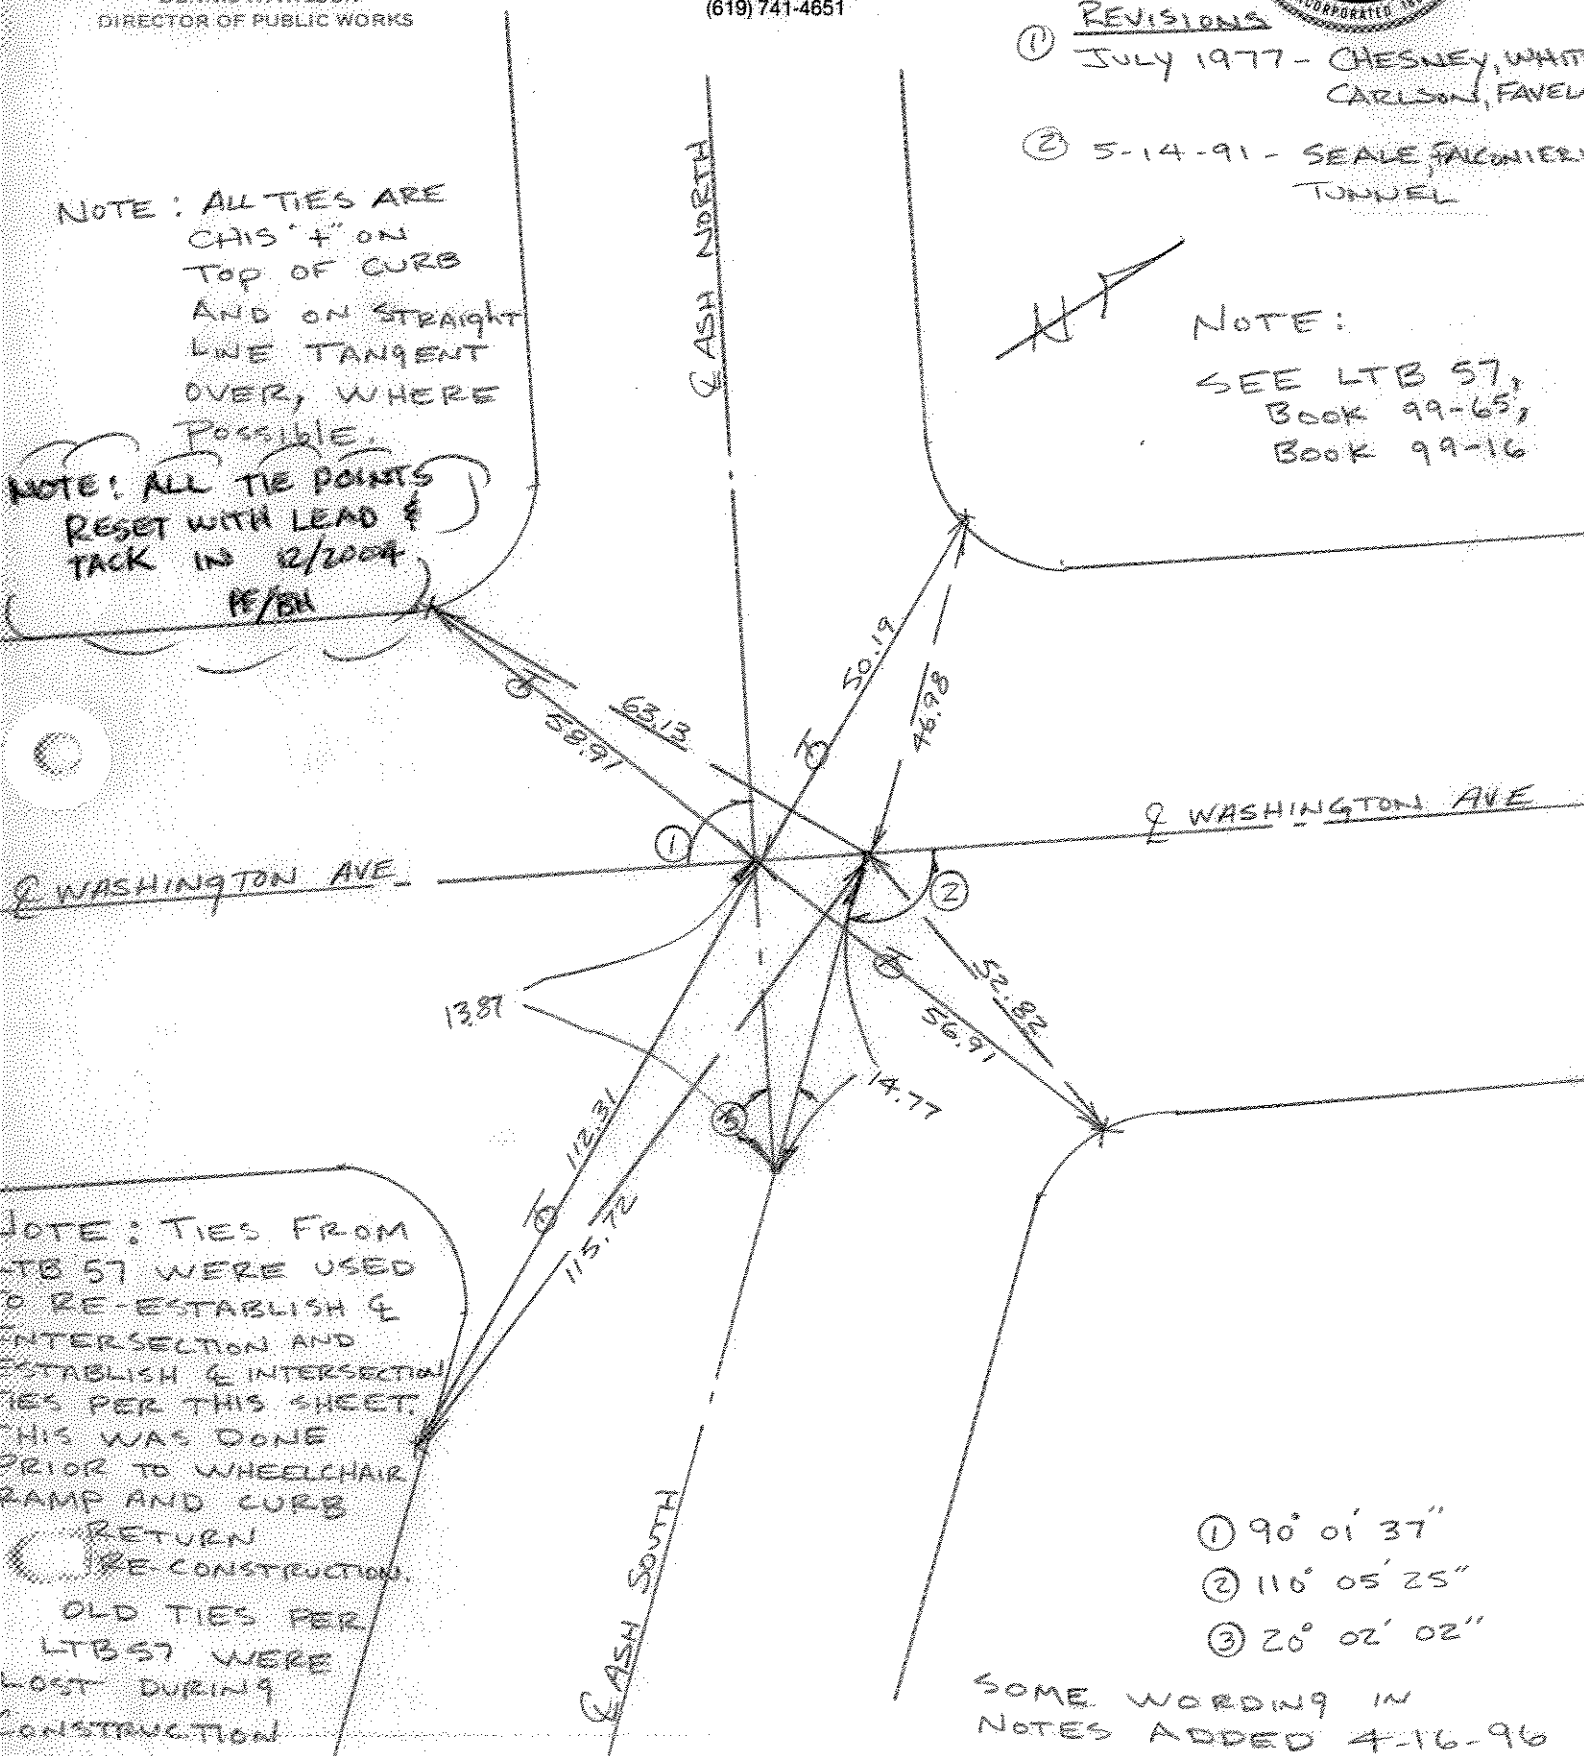 DIRECTOR OF PUBLIC WORKS
(619) 741-4651
INCORPORATED
REVISIONS
① JULY 1977 - CHESNEY,
CARLSON,
② 5-14-91 - SEALE,
TUNNEL
NOTE: ALL TIES ARE
CHIS "+" ON
TOP OF CURB
AND ON STRAIGHT
LINE TANGENT
OVER, WHERE
POSSIBLE.
NOTE: ALL TIE POINTS
RESET WITH LEAD &
TACK IN 12/2004
PF/BH
℄ ASH NORTH
N
NOTE:
SEE LTB 57,
BOOK 99-65,
BOOK 99-16
50.19
46.98
63.13
58.91
①
②
℄ WASHINGTON AVE
℄ WASHINGTON AVE
13.87
52.82
56.91
14.77
③
112.31
115.72
NOTE: TIES FROM
LTB 57 WERE USED
TO RE-ESTABLISH ℄
INTERSECTION AND
ESTABLISH ℄ INTERSECTION
TIES PER THIS SHEET.
THIS WAS DONE
PRIOR TO WHEELCHAIR
RAMP AND CURB
RETURN
RE-CONSTRUCTION.
OLD TIES PER
LTB57 WERE
LOST DURING
CONSTRUCTION
℄ ASH SOUTH
① 90° 01' 37"
② 110° 05' 25"
③ 20° 02' 02"
SOME WORDING IN
NOTES ADDED 4-16-96